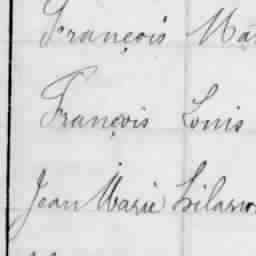 François Ma
François Louis
Jean Marie